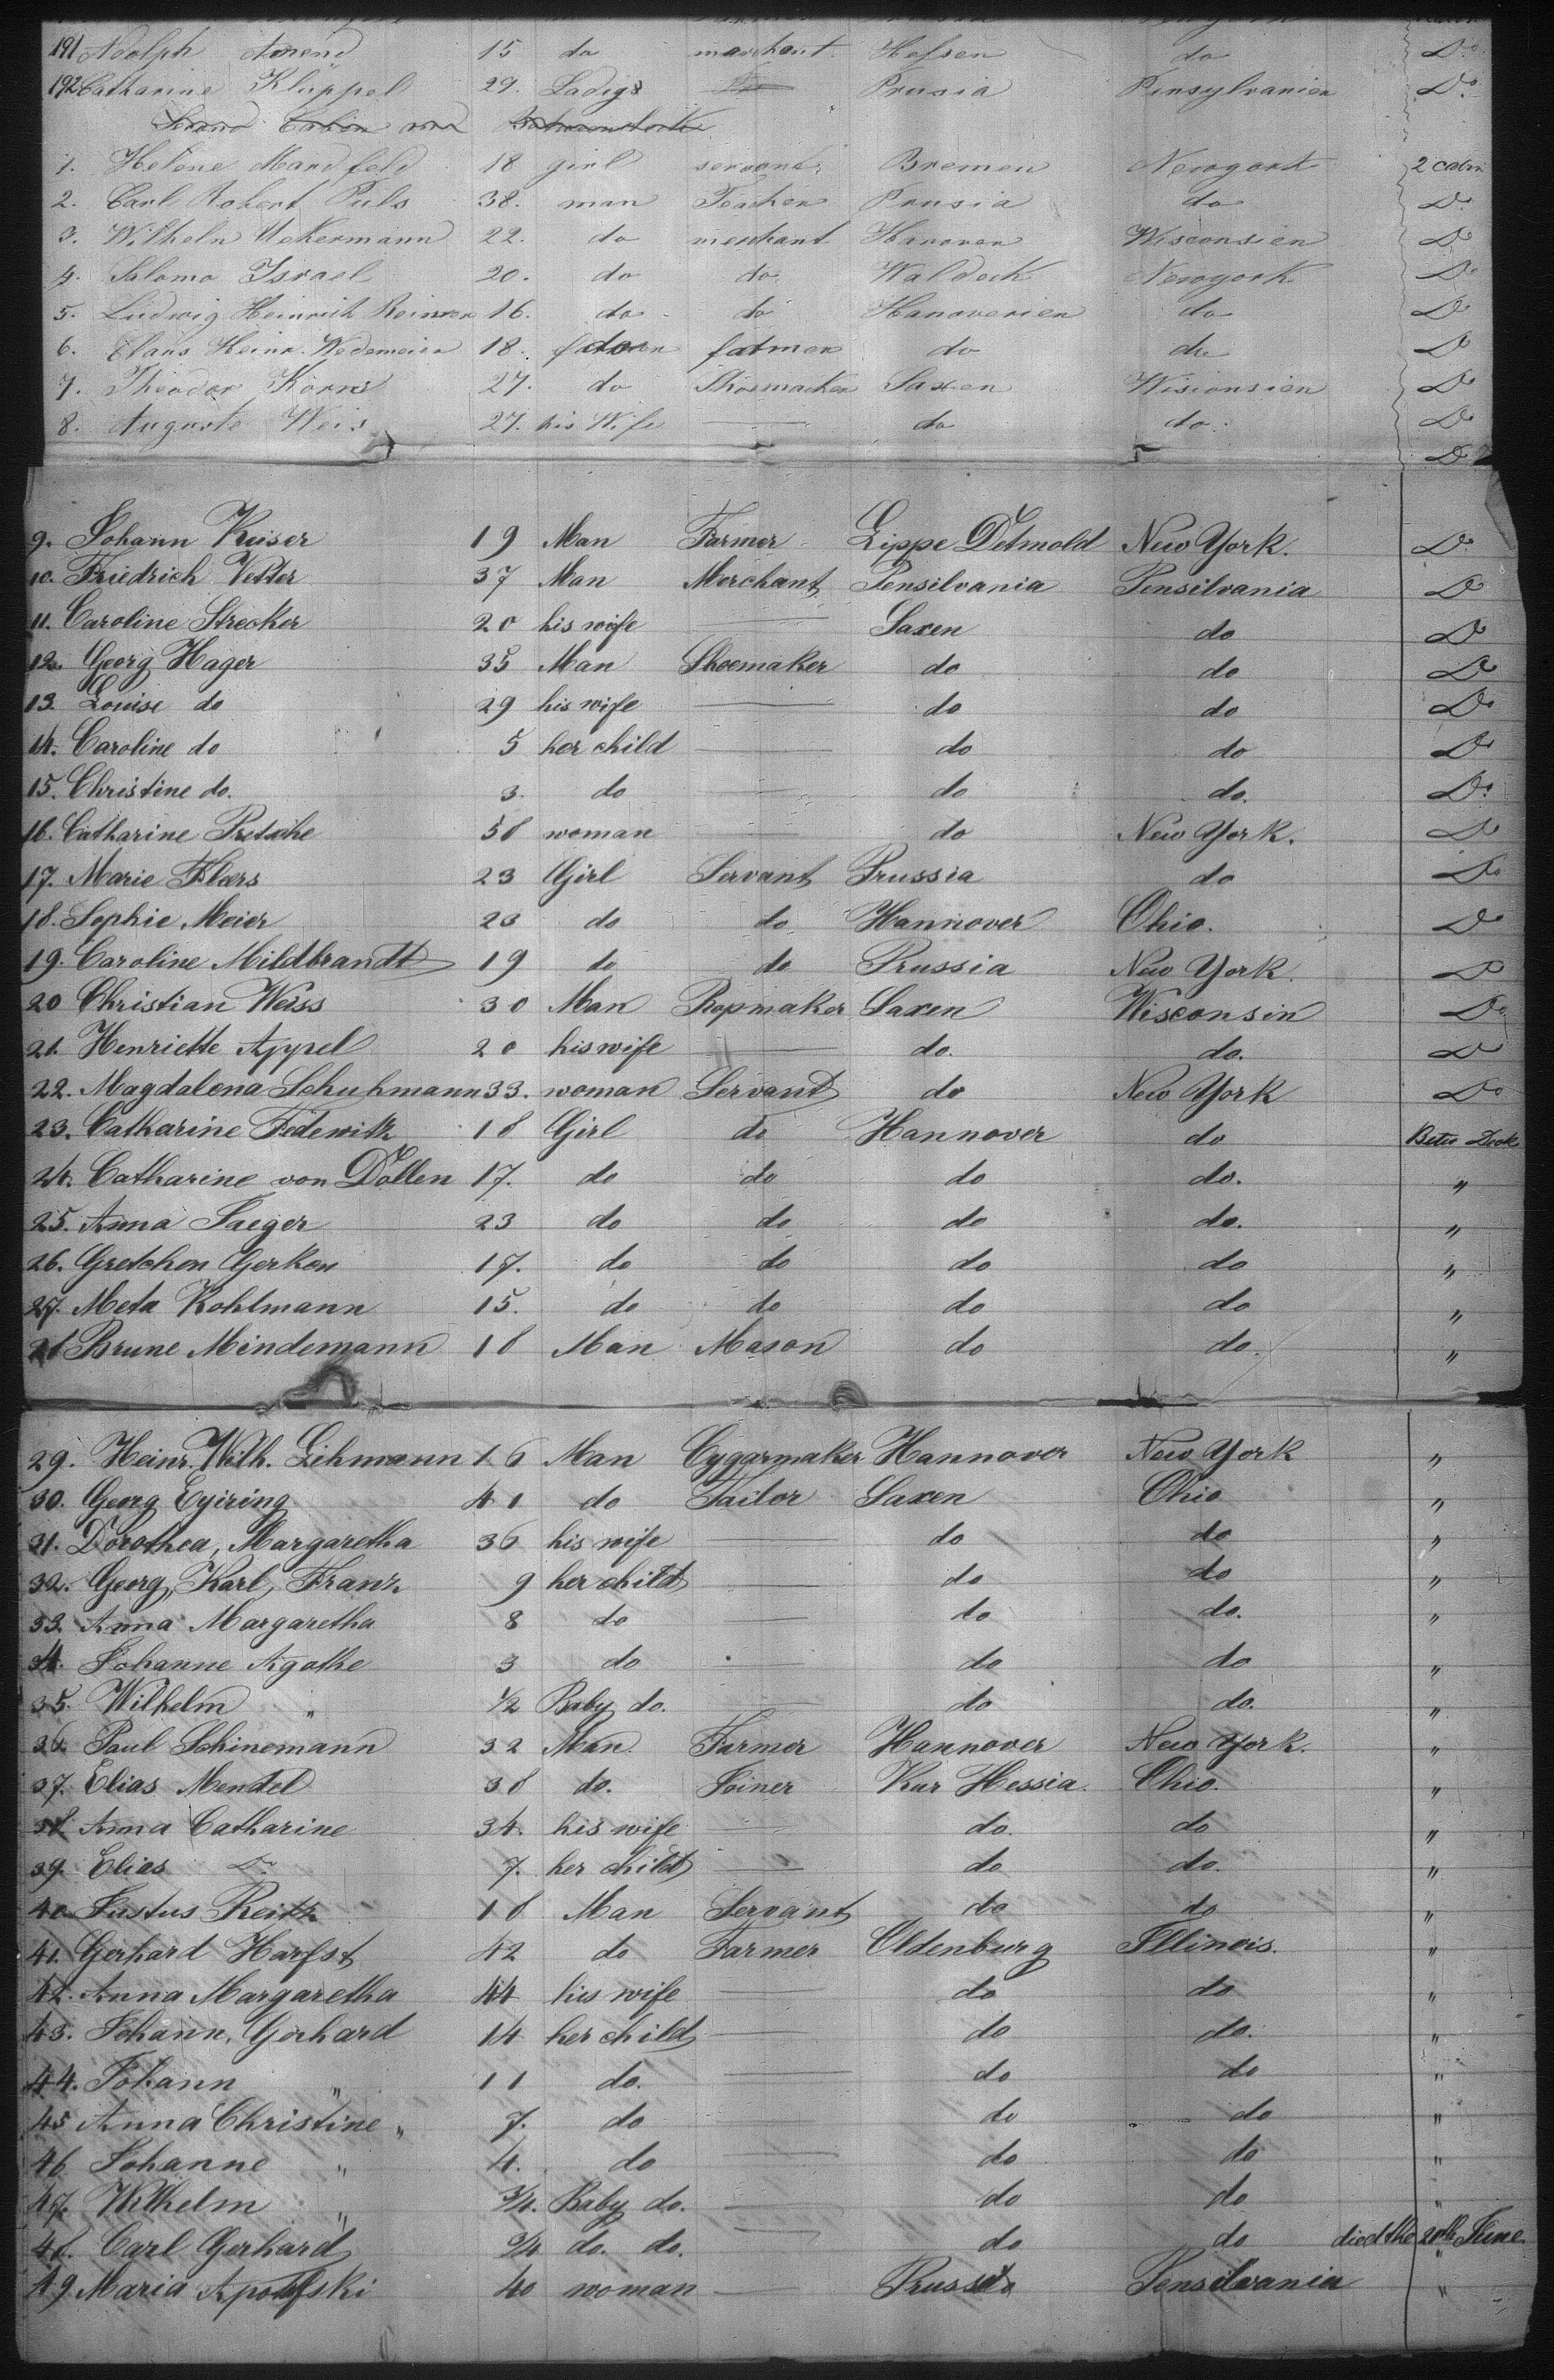 191 Adolph Amend 15 do merchant Hessen do Do
192 Catharine Klüppel 29. Ladies Prusia Pensylvanien Do
1. Helene Mandfeld 18 girl servant Bremen Newyork 2 cabin
2. Carl Robert Puls 38. man Teacher Prusia do Do
3. Wilheln Uekermann 22. do merchant Hanover Wisconsien Do
4. Salomo Israel 20. do do Waldeck Newyork Do
5. Ludwig Heinrich 16. do do Hanoverien do Do
6. Claus Heinr. Wedemeier 18. do fatmer do do Do
7. Theodor Körns 27. do Shoemacker Saxen Wisionsien Do
8. Auguste Weis 27. his Wife do do Do
Do
9. Johann Keiser 19 Man Farmer Lippe Detmold New York. Do
10. Friedrich Vetter 37 Man Merchant Pensilvania Pensilvania Do
11. Caroline Strecker 20 his wife Saxen do Do
12. Georg Hager 35 Man Shoemaker do do Do
13. Louise do 29 his wife do do Do
14. Caroline do 5 her child do do Do
15. Christine do. 3. do do do. Do
16. Catharine Petsche 58 woman do New York. Do
17. Marie 23 Girl Servant Prussia do Do
18. Sophie Meier 23 do do Hannover Ohio. Do
19. Caroline Mildbrandt 19 do do Prussia New York. Do
20 Christian Weiss 30 Man Ropmaker Saxen Wisconsin Do
21. Henriette Appel 20 his wife do. do. Do
22. Magdalena Schuhmann 33. woman Servant do New York Do
23. Catharine Fidewitz 18 Girl do Hannover do Betw Deck
24. Catharine von Döllen 17. do do do do. "
25. Anna Jaeger 23 do do do do. "
26. Gretchen Gerken 17. do do do do "
27. Meta Kohlmann 15. do do do do "
28 Brune Mindemann 18 Man Mason do do. "
29. Heinr. Wilh. Lihmann 16 Man Cyggrmaker Hannover New York "
30. Georg Eyiring 41 do Tailor Saxen Ohio "
31. Dorothea, Margaretha 36 his wife do do "
32. Georg, Karl, Franz 9 her child do do "
33. Anna Margaretha 8 do do do. "
34. Johanne Agathe 3 do do do "
35. Wilhelm " 1/2 Baby do. do do. "
36. Paul Schinemann 32 Man. Farmer Hannover New York. "
37. Elias Mendel 38 do. Joiner Kur Hessia Ohio. "
38. Anna Catharine 34. his wife do. do "
39. Elias Do 7. her child do do. "
40. Justus Reitz 18 Man Servant do do "
41. Gerhard Harfst 42 do Farmer Oldenburg Illinois. "
42. Anna Margaretha 44 his wife do do "
43. Johann, Gerhard 14 her child do do. "
44. Johann " 11 do. do do "
45 Anna Christine " 7. do do do "
46 Johanne " 4. do do do "
47. Wilhelm " 3/4. Baby do. do do "
48. Carl Gerhard 3/4 do. do. do do died the 20th June
49. Maria 40 woman Prussia Pensilvania "